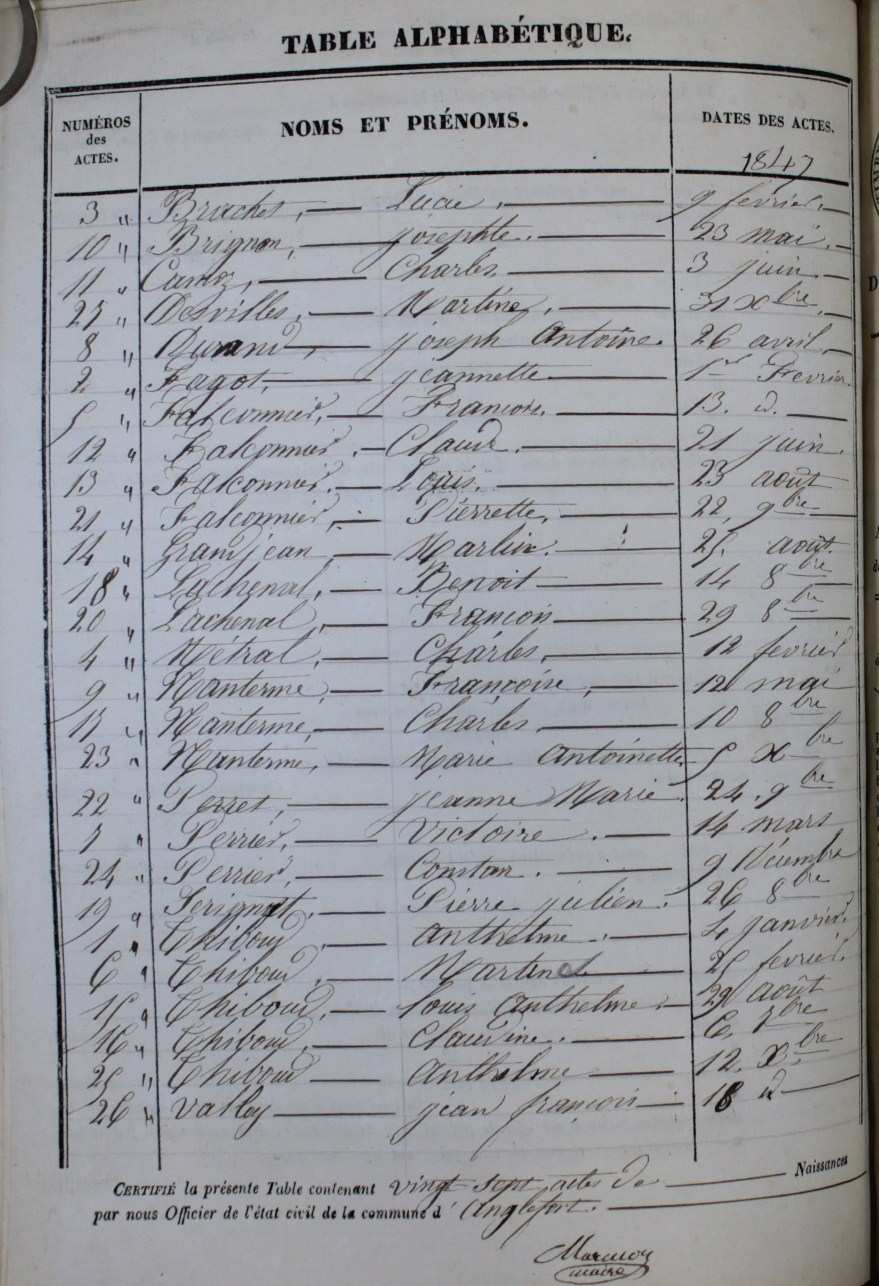 TABLE ALPHABÉTIQUE.
NUMÉROS des ACTES. NOMS ET PRÉNOMS. DATES DES ACTES.
1847
3 " Brachet, — Lucie. — 9 fevrier. —
10 " Brignon, — josephte. — 23 mai. —
11 " — Charles — 3 juin. —
27 " Desvilles, — Martine, — 31 Xbre. —
8 " Durand, — joseph Antoine. 26 avril. —
2 " Fagot, — jeannette — 1er Fevrier.
5 " Falconnier, — Francois. — 13. d. —
12 " Falconnier. — Claude. — 21 juin.
13 " Falconnier. — Louis. — 23 août
21 " Falconnier, — Pierrette, — 22, 9bre
14 " Grandjean, — — 25. août.
18 " Lachenal, — Benoit — 14 8bre
20 " Lachenal, — Francois — 29 8bre
4 " Métral, — Charles, — 12 fevrier
9 " Nanterme, — Françoise, — 12 mai
17 " Nanterme, — Charles — 10 8bre
23 " Nanterme, — Marie Antoinette 5 Xbre
22 " Perret, — jeanne Marie. 24. 9bre
7 " Perrier, — Victoire. — 14 mars
24 " Perrier, — Constan. — 9 Décembre
19 " Serignat. — Pierre julien. 26 8bre
1 " Thiboud, — Anthelme. — 4 janvier.
6 " Thiboud, — — 25 fevrier.
15 " Thiboud, — Louis Anthelme. — 29 août
16 " Thiboud, — Claudine. — 6. 7bre
25 " Thiboud — Anthelme — 12. Xbre
26 " Vallay — jean françois — 18 d —
CERTIFIÉ la présente Table contenant vingt sept actes de — Naissances
par nous Officier de l'état civil de la commune d' Anglefort. —
maire